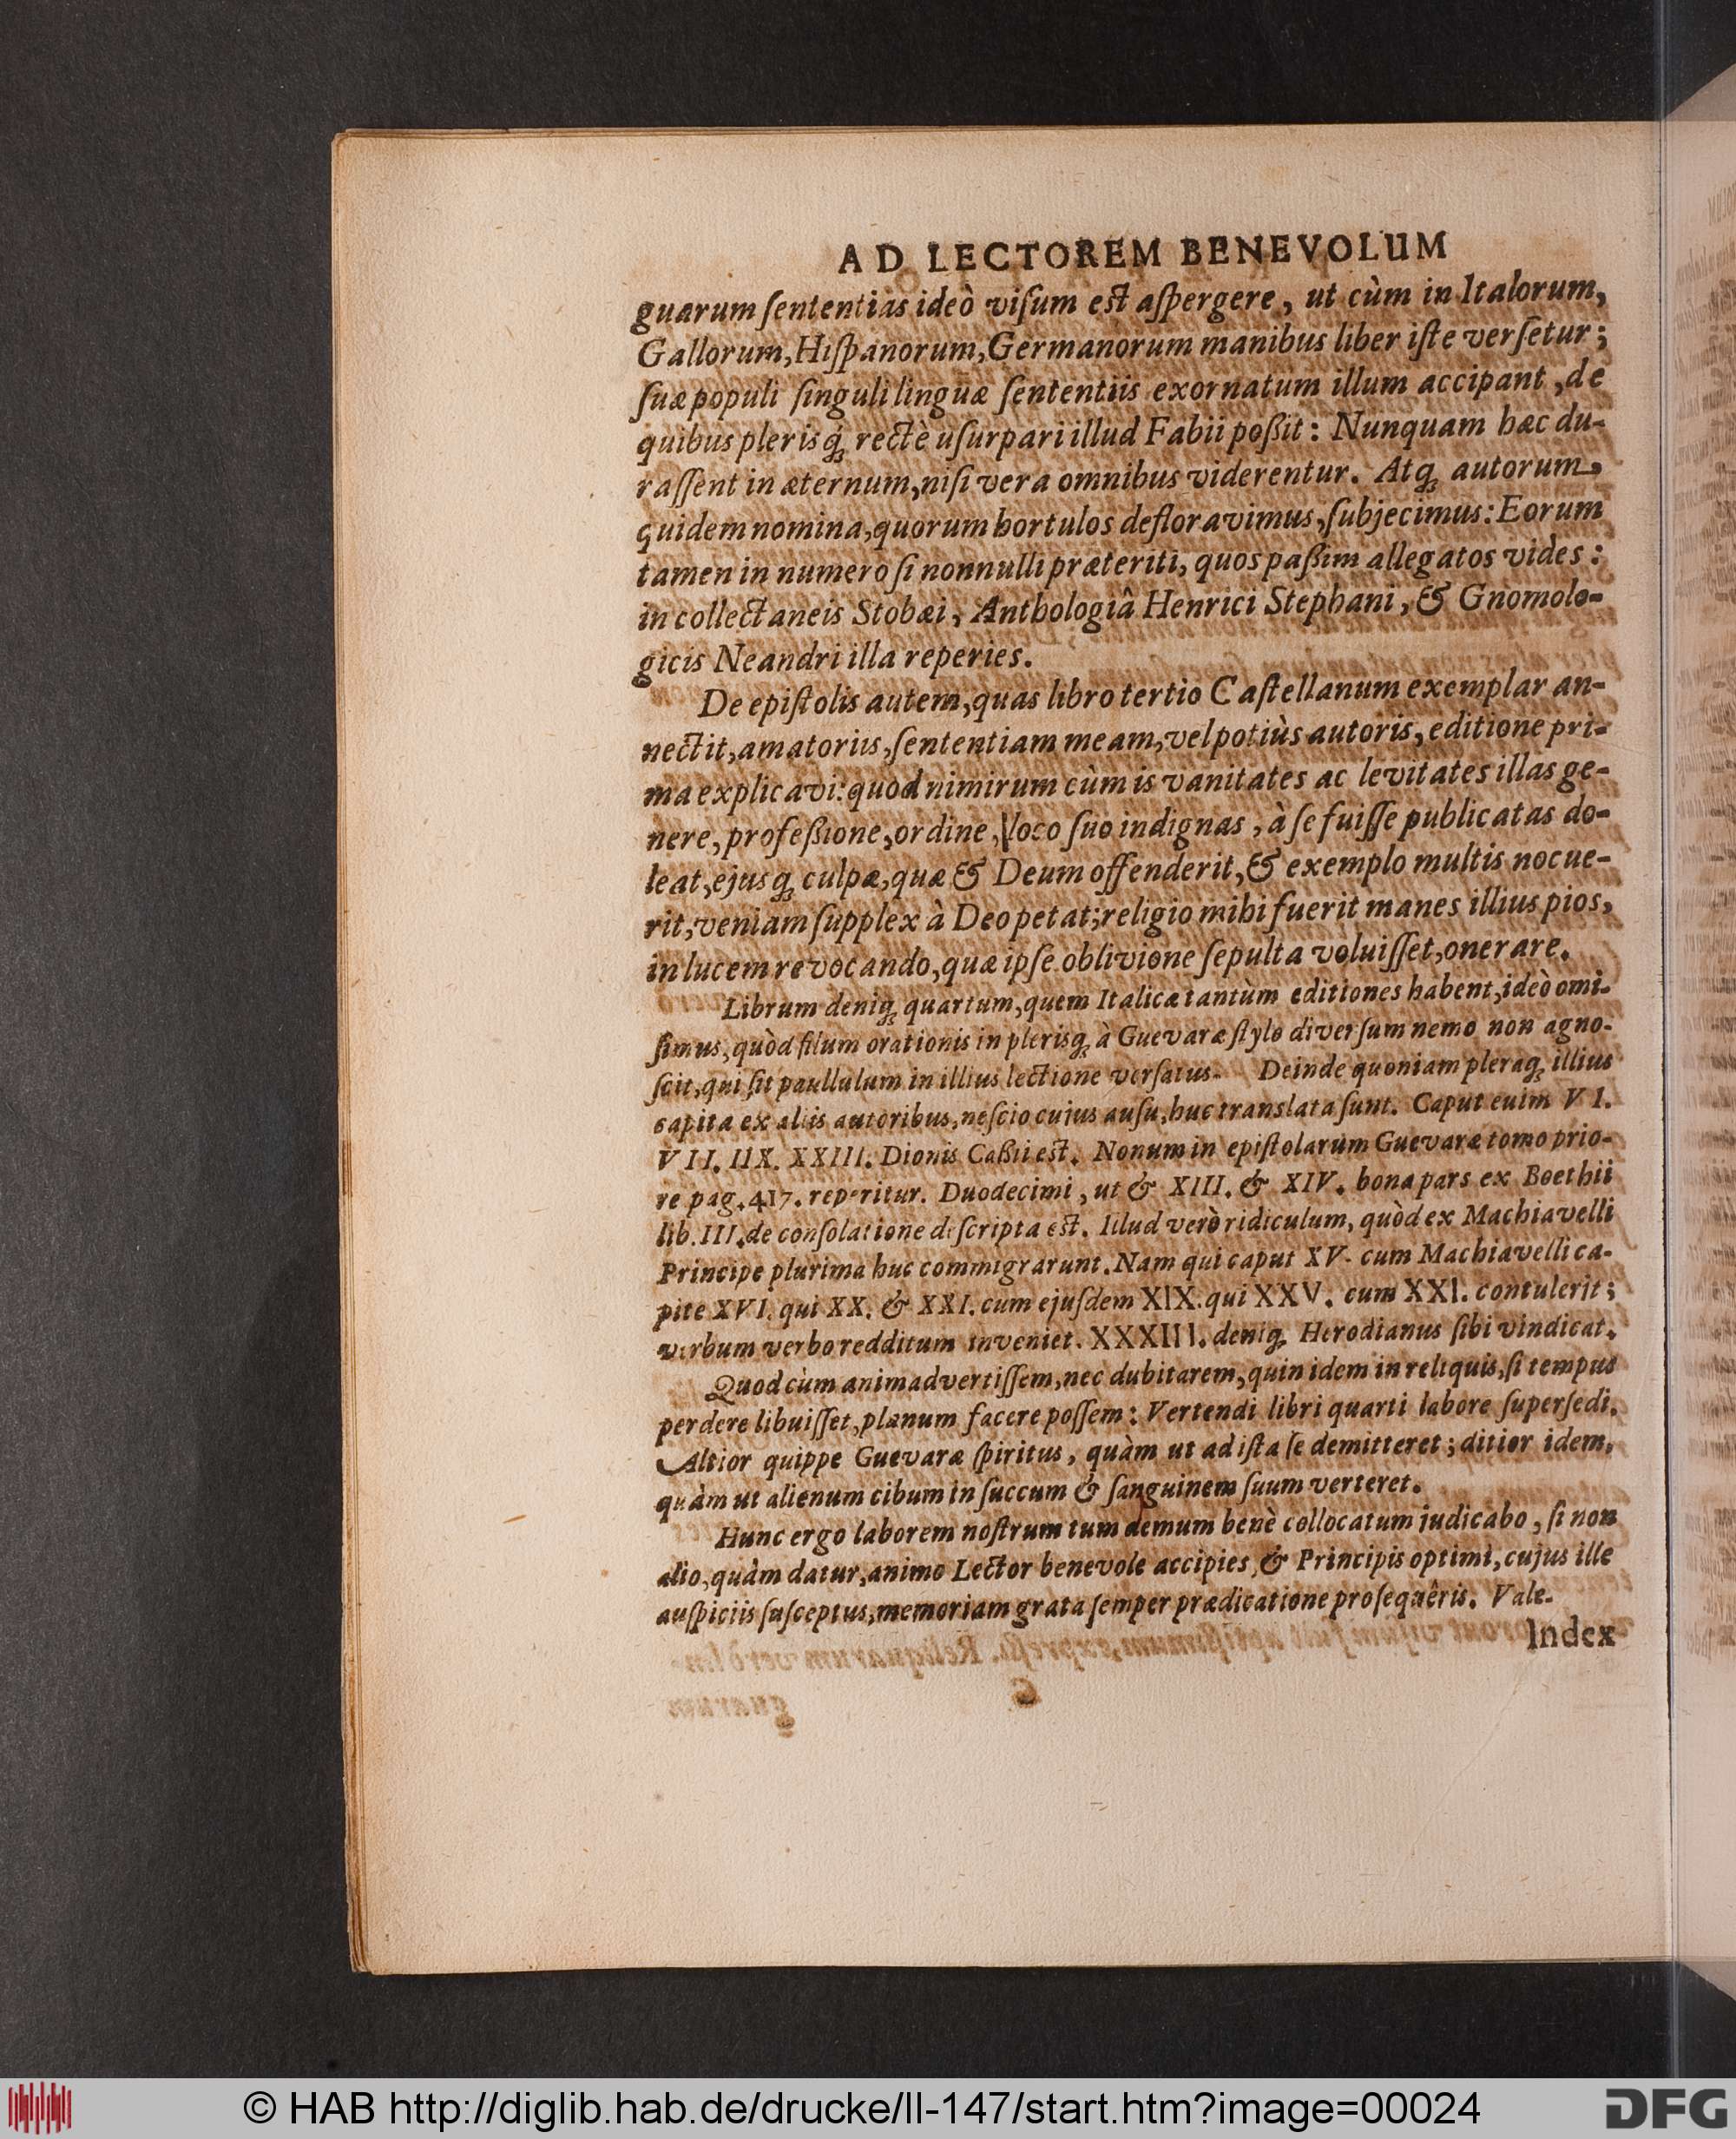 AD LECTOREM BENEVOLUM
guarum ſententias ideò viſum est aſpergere, ut cùm in Italorum,
Gallorum, Hiſpanorum, Germanorum manibus liber iſte verſetur;
ſuæ populi ſinguli linguæ ſententiis exornatum illum accipant, de
quibus plerisq́ꝫ rectè uſurpari illud Fabii poßit: Nunquam hæc du-
raſſent in æternum, niſi vera omnibus viderentur. Atqꝫ autorum,
quidem nomina, quorum hortulos defloravimus, ſubjecimus: Eorum
tamen in numero ſi nonnulli præteriti, quos paßim allegatos vides:
in collectaneis Stobæi, Anthologiâ Henrici Stephani, & Gnomolo-
gicis Neandri illa reperies.
De epiſtolis autem, quas libro tertio Caſtellanum exemplar an-
nectit, amatoriis, ſententiam meam, vel potiùs autoris, editione pri-
ma explicavi: quod nimirum cùm is vanitates ac levitates illas ge-
nere, profeßione, ordine, loco ſuo indignas, à ſe fuiſſe publicatas do-
leat, ejusqꝫ culpæ, quæ & Deum offenderit, & exemplo multis nocue-
rit, veniam ſupplex à Deo petat; religio mihi fuerit manes illius pios,
in lucem revocando, quæ ipſe oblivione ſepulta voluiſſet, onerare.
Librum deniqꝫ quartum, quem Italicæ tantùm editiones habent, ideò omi-
ſimus, quòd filum orationis in plerisqꝫ à Guevaræ ſtylo diverſum nemo non agno-
ſcit, qui ſit paullulum in illius lectione verſatus. Deinde quoniam pleraqꝫ illius
capita ex aliis autoribus, neſcio cujus auſu, huc translata ſunt. Caput enim VI.
VII. IIX. XXIII. Dionis Caßii est. Nonum in epiſtolarum Guevaræ tomo prio-
re pag. 417. reperitur. Duodecimi, ut & XIII. & XIV. bona pars ex Boethii
lib. III. de conſolatione deſcripta est. Illud verò ridiculum, quòd ex Machiavelli
Principe plurima huc commigrarunt. Nam qui caput XV. cum Machiavelli ca-
pite XVI. qui XX. & XXI. cum ejuſdem XIX. qui XXV. cum XXI. contulerit;
verbum verbo redditum inveniet. XXXIII. deniqꝫ Herodianus ſibi vindicat.
Quod cùm animadvertiſſem, nec dubitarem, quin idem in reliquis, ſi tempus
perdere libuiſſet, planum facere poſſem: Vertendi libri quarti labore ſuperſedi.
Altior quippe Guevaræ ſpiritus, quàm ut ad iſta ſe demitteret; ditior idem,
quàm ut alienum cibum in ſuccum & ſanguinem ſuum verteret.
Hunc ergo laborem noſtrum tum demum benè collocatum judicabo, ſi non
alio, quàm datur, animo Lector benevole accipies, & Principis optimi, cujus ille
auſpiciis ſuſceptus, memoriam grata ſemper prædicatione proſequêris. Vale.
Index
© HAB http://diglib.hab.de/drucke/ll-147/start.htm?image=00024
DFG